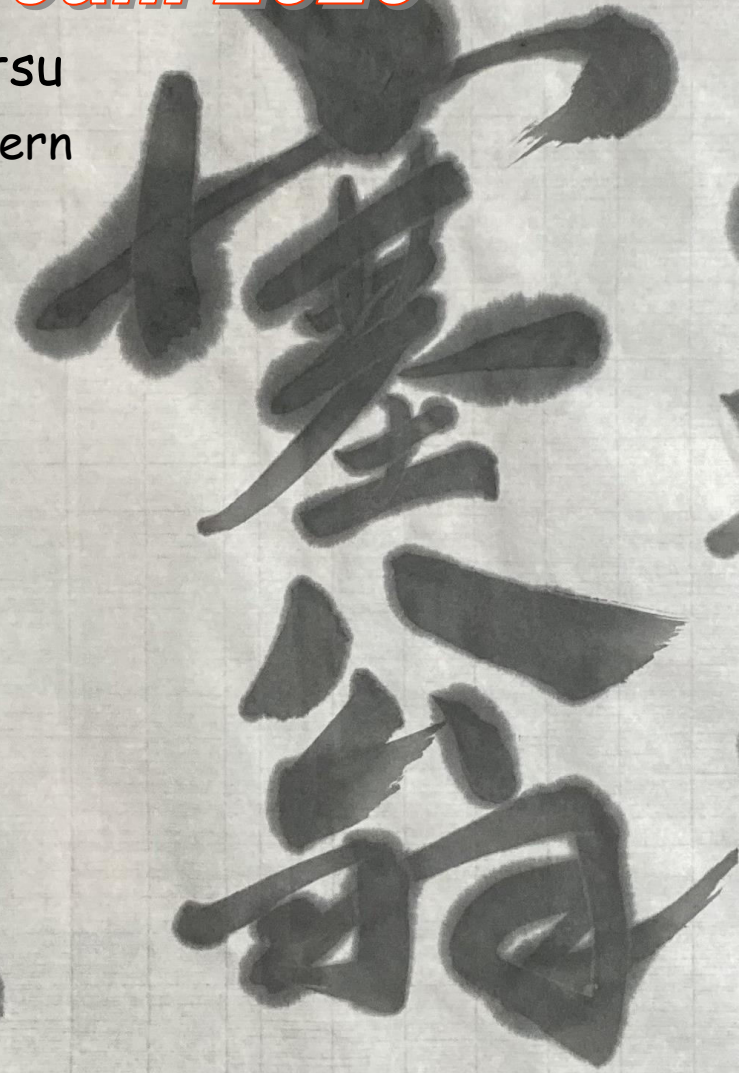 tsu
ern
塞
翁